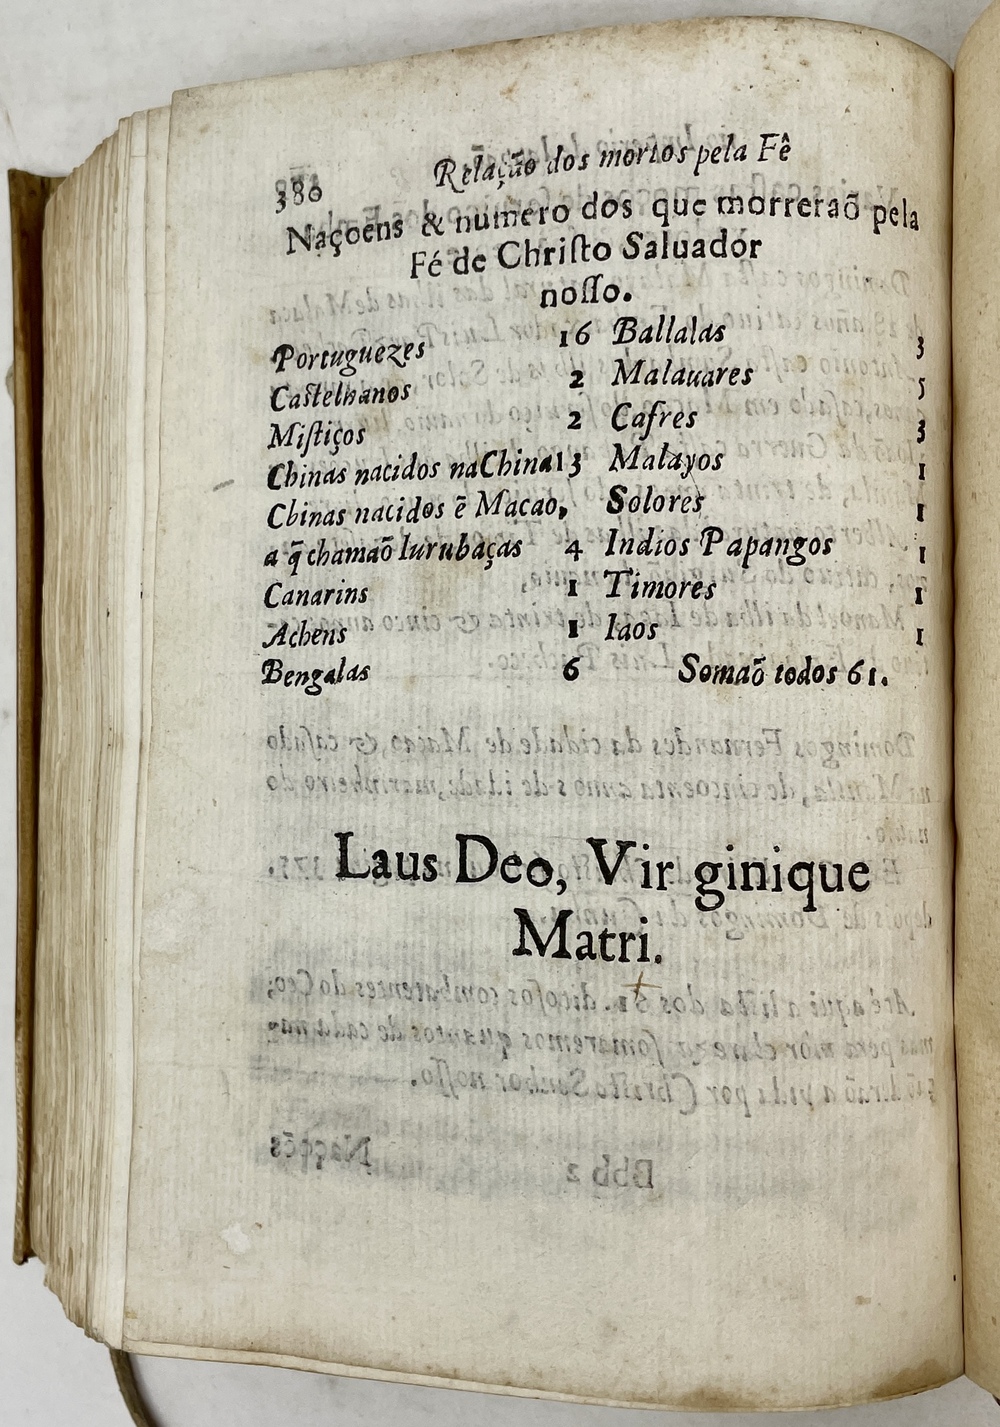 380 Relação dos mortos pela Fê
Naçoens & numero dos que morreraõ pela
Fé de Chriſto Saluador
noſſo.
Portuguezes 16
Caſtelhanos 2
Miſtiços 2
Chinas nacidos naChina13
Chinas nacidos ẽ Macao,
a q̃ chamaõ Iurubaças 4
Canarins 1
Achens 1
Bengalas 6
Ballalas 3
Malauares 5
Cafres 3
Malayos 1
Solores 1
Indios Papangos 1
Timores 1
Iaos 1
Somaõ todos 61.
Laus Deo, Vir ginique
Matri.